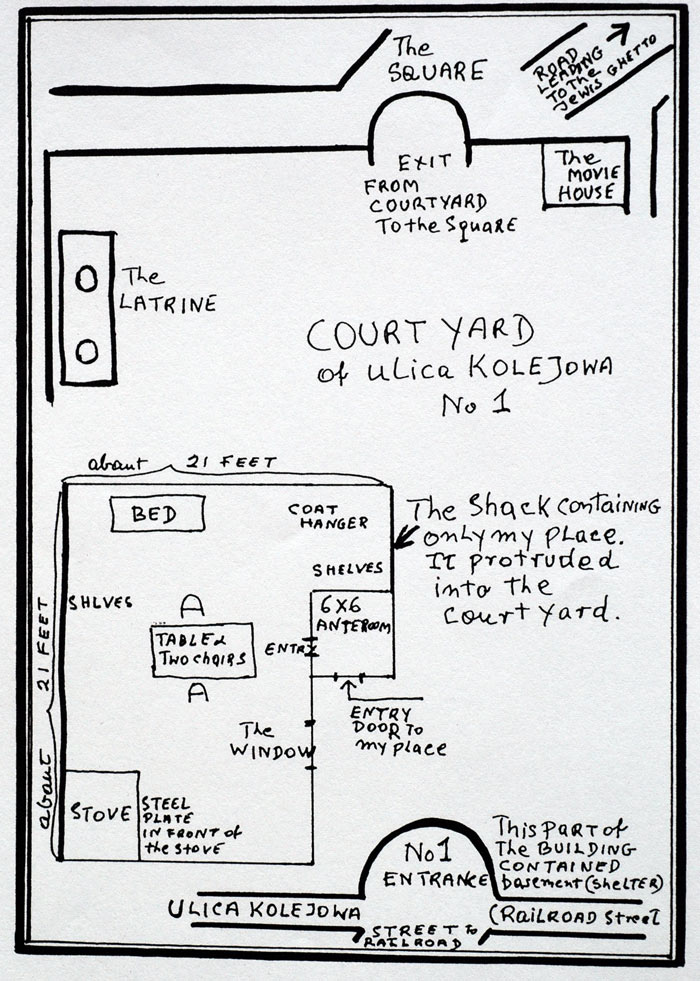 The
SQUARE
ROAD
LEADING
TO the
JEWIS GHETTO
EXIT
FROM
COURTYARD
To the Square
The
MOVIE
HOUSE
The
LATRINE
COURT YARD
of ULica KOLEJOWA
No 1
abaut 21 FEET
BED
COAT
HANGER
SHELVES
The Shack containing
only my place.
It protruded
into the
court yard.
SHLVES
6X6
ANTEROOM
TABLE &
Two chairs
ENTRY
ENTRY
DOOR TO
my place
The
WINDOW
abaut 21 FEET
STOVE
STEEL
PLATE
IN FRONT of
the STOVE
No 1
ENTRANCE
This part of
The BUILDING
CONTAINED
basement (SHELTER)
ULICA KOLEJOWA
(RaiLROAD Street
STREET to
RAILROAD